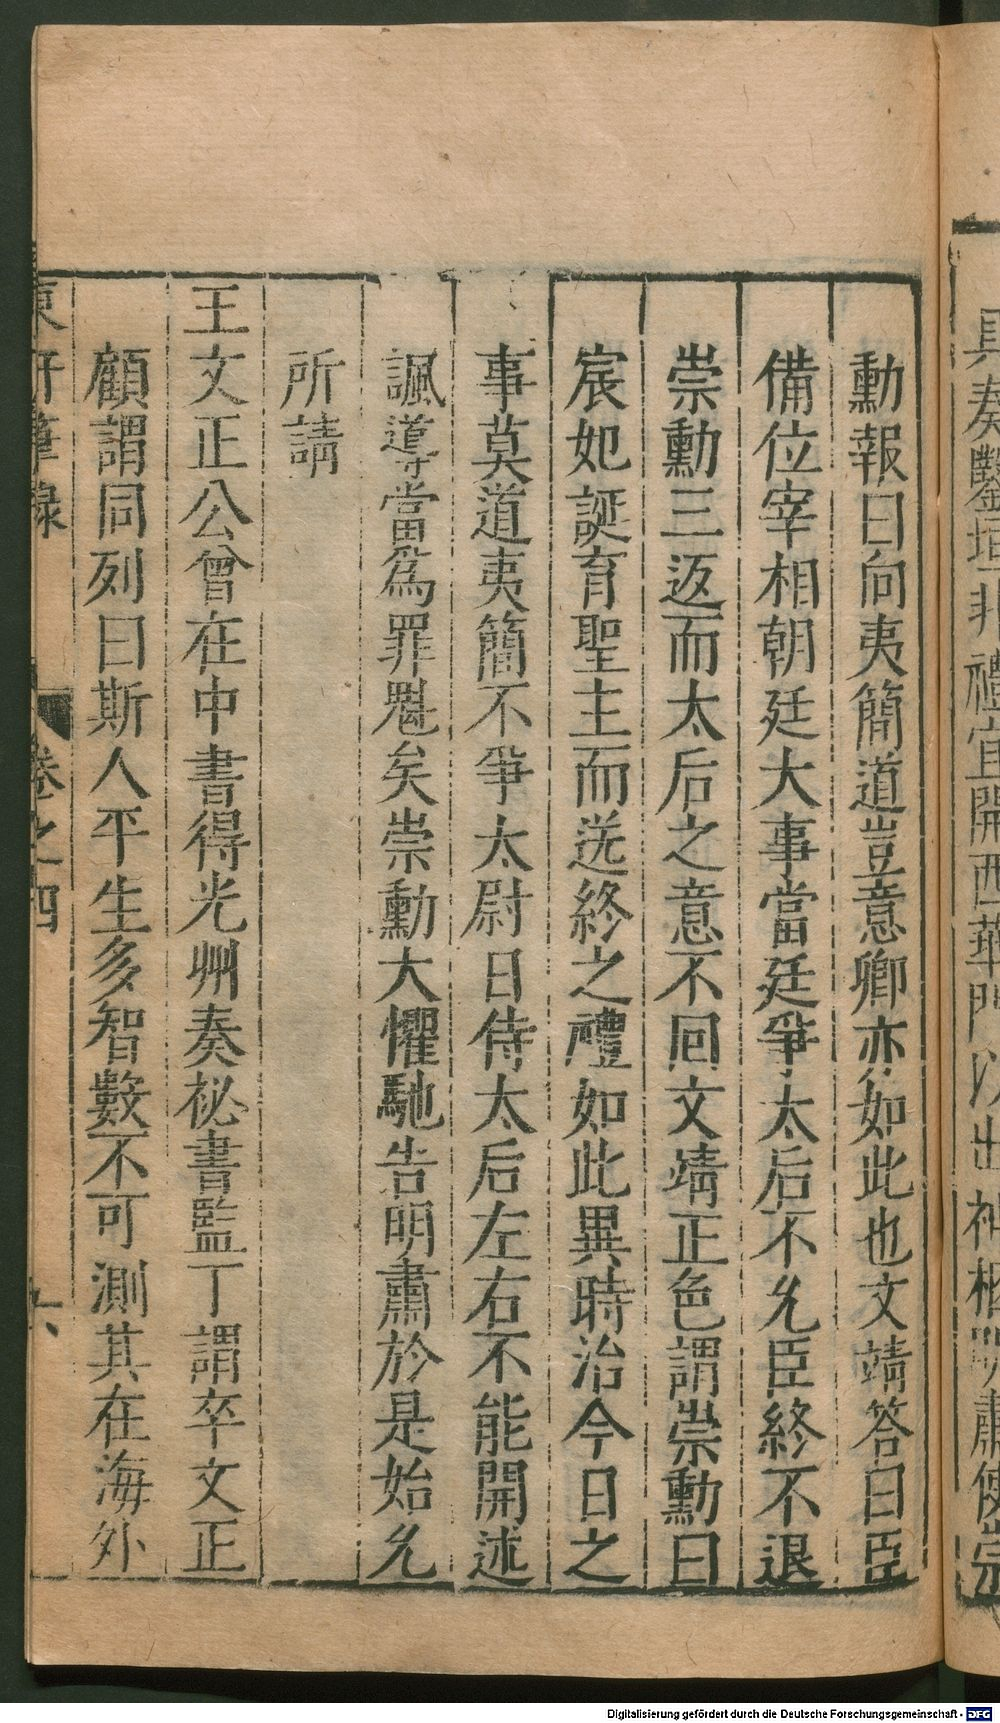 具奏鑿垣非禮宜開西華門以出神柩明肅使崇
勳報曰向夷簡道豈意卿亦如此也文靖答曰臣
備位宰相朝廷大事當廷爭太后不允臣終不退
崇勳三返而太后之意不回文靖正色謂崇勳曰
宸妃誕育聖主而送終之禮如此異時治今日之
事莫道夷簡不爭太尉日侍太后左右不能開述
諷導當爲罪魁矣崇勳大懼馳告明肅於是始允
所請
王文正公曾在中書得光州奏秘書監丁謂卒文正
顧謂同列曰斯人平生多智數不可測其在海外
東軒筆錄 卷之四 六
Digitalisierung gefördert durch die Deutsche Forschungsgemeinschaft - DFG